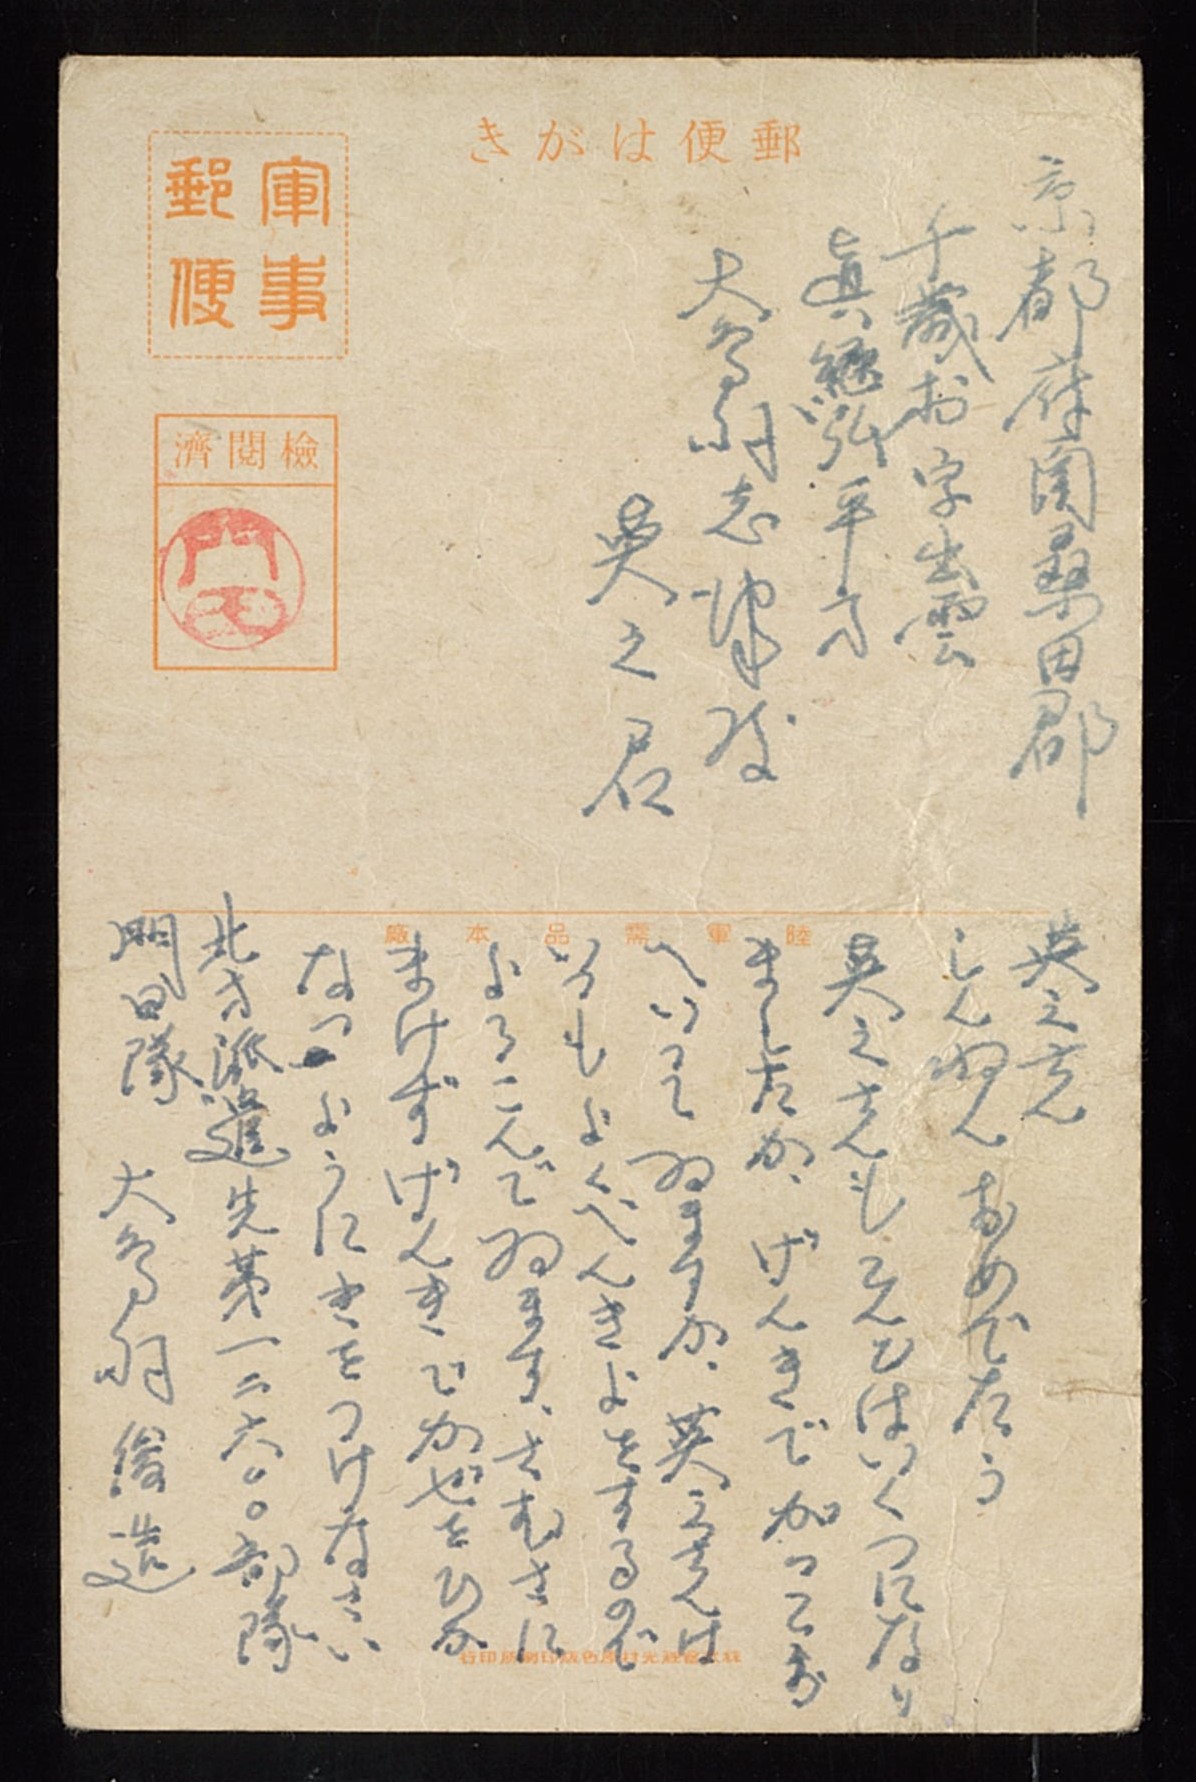 郵便はがき
軍事
郵便
檢閲濟
京都府南桑田郡
千歳村字出雲
眞継弘平方
大鳥羽志津殿
英之君
陸軍需品本廠
英之さん
しんねんおめでたう
英之さんもことしはいくつになり
ましたか、げんきで加つこお
へいつてゐますか、英之さんは
いつもよくべんきよをするので
よろこんでゐます、さむさに
まけずげんきでかぜをひか
なつようにきをつけなさい
北方派遣先第一二六〇〇部隊
明田隊 大鳥羽俊造